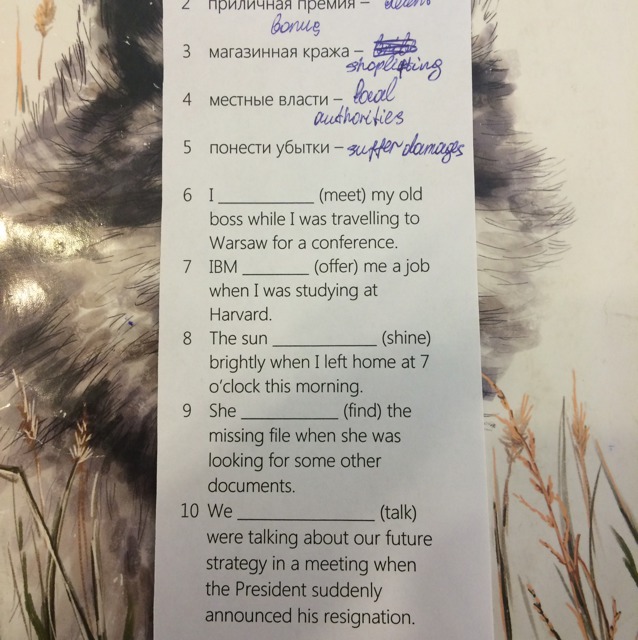 2 приличная премия – decent
bonus
3 магазинная кража –
shoplifting
4 местные власти – local
authorities
5 понести убытки – suffer damages
6 I __________ (meet) my old
boss while I was travelling to
Warsaw for a conference.
7 IBM _______ (offer) me a job
when I was studying at
Harvard.
8 The sun ___________ (shine)
brightly when I left home at 7
o'clock this morning.
9 She __________ (find) the
missing file when she was
looking for some other
documents.
10 We ______________ (talk)
were talking about our future
strategy in a meeting when
the President suddenly
announced his resignation.